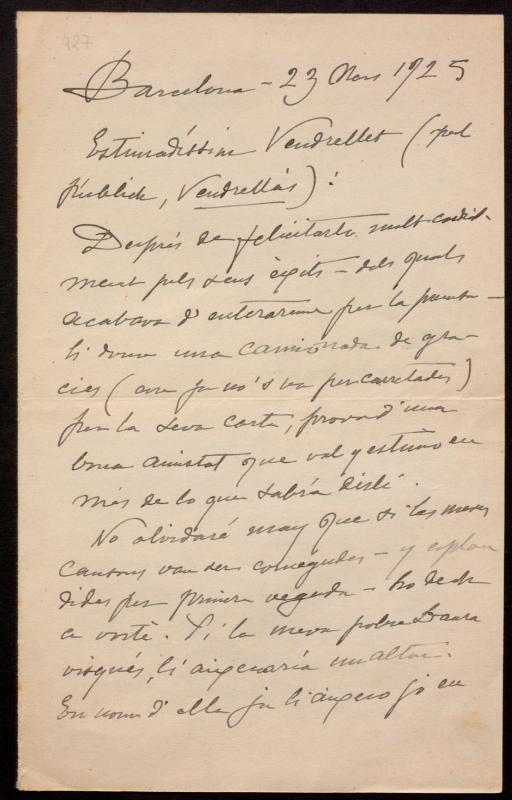 427
Barcelona - 23 Mars 1925
Estimadíssim Vendrellet (pel
públich, Vendrellàs):
Després de felicitarlo molt cordial-
ment pels seus èxits - dels quals
acabava d'enterarme per la prensa -
li dono una camionada de gra-
cies (ara ja no's va per carretades)
per la seva carta, prova d'una
bona amistat que val y estimo en
més de lo que sabría dirli.
No olvidaré may que si las meves
cansons van ser conegudes - y
per primera vegada - ho dech
a vostè. Si la meva pobre Laura
visqués, li aixecaría un altar.
En nom d'ella ja li aixeco jo en